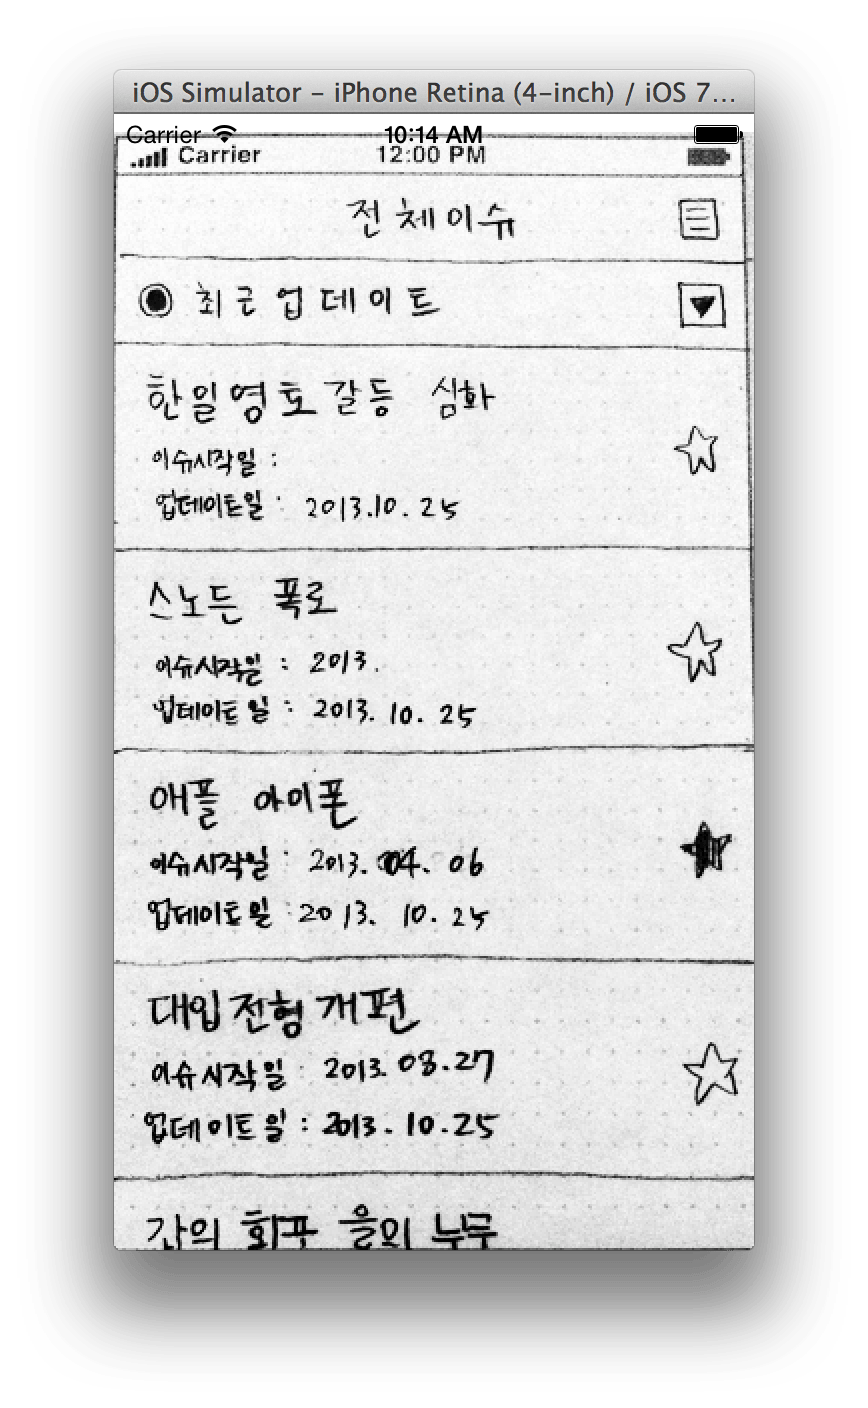 iOS Simulator – iPhone Retina (4-inch) / iOS 7...
Carrier 10:14 AM
Carrier 12:00 PM
전체이슈
최근 업데이트
한일영토갈등 심화
이슈시작일 :
업데이트일 : 2013.10.25
스노든 폭로
이슈시작일 : 2013.
업데이트일 : 2013. 10. 25
애플 아이폰
이슈시작일 : 2013. 04. 06
업데이트일 : 2013. 10. 25
대입전형개편
이슈시작일 : 2013. 08.27
업데이트일 : 2013. 10.25